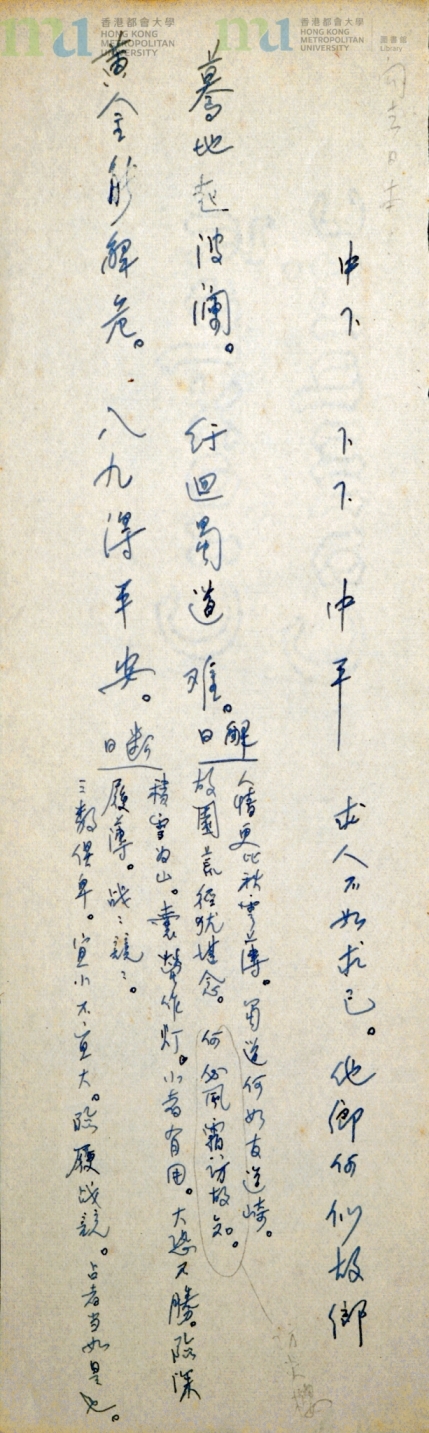 香港都會大學
HONG KONG
METROPOLITAN
UNIVERSITY
香港都會大學
HONG KONG
METROPOLITAN
UNIVERSITY
圖書館
Library
中下 下下 中平 求人不如求己。他鄉何似故鄉
驀地起波瀾。紆迴蜀道难。
解曰
人情更比秋雲薄。蜀道何如友道崎。
故園荒徑犹堪念。何必風霜訪故知。
黄金能解危。八九得平安。
断曰
積雪为山。囊螢作灯。小者有用。大恐不勝。臨深
履薄。战〻兢〻。
三数俱卑。宜小不宜大。臨履战兢。占者当如是也。